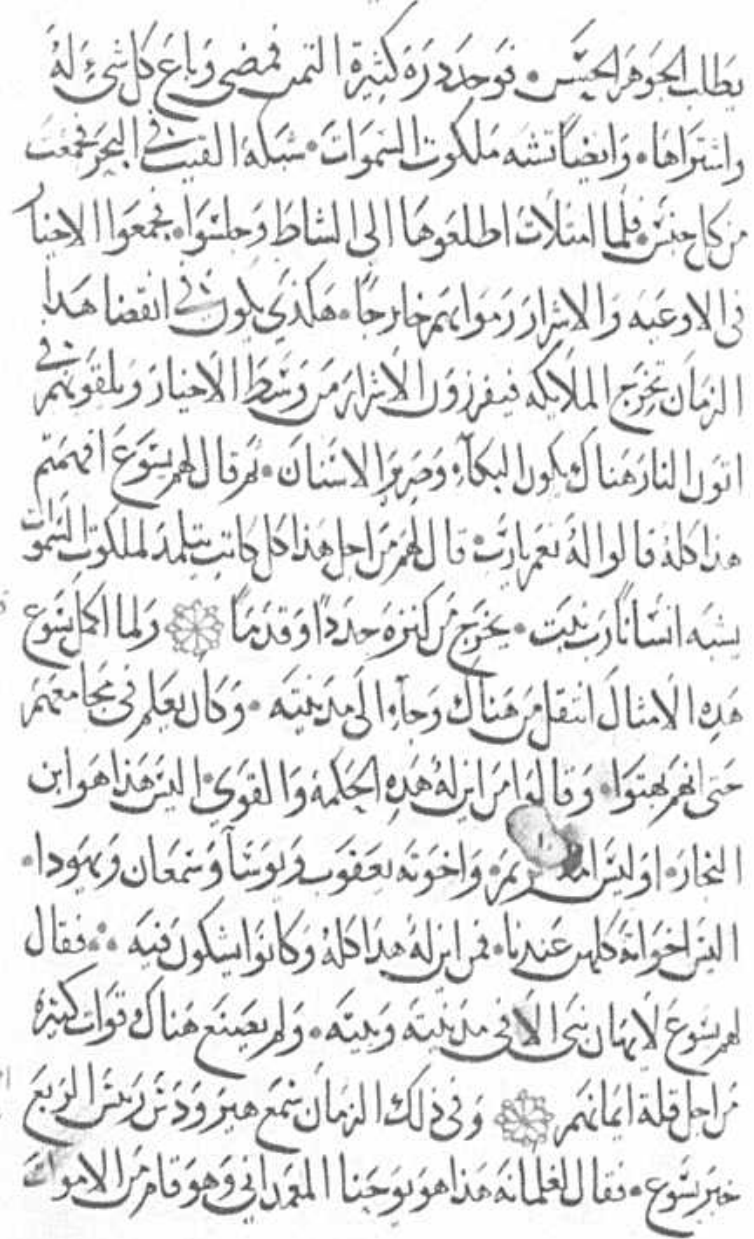 يطلب الجوهر الحسن فوجد درة كثيرة الثمن فمضى وباع كل شئ له
واشتراها وايضا تشبه ملكوت السموات شبكة القيت في البحر فجمعت
من كل جنس فلما امتلات اطلعوها الى الشاط وجلسوا فجمعوا الاخيار
في الاوعيه والاشرار رموا بهم خارجا هكذى يكون في انقضا هدا
الزمان تخرج الملايكه فيفرزون الاشرار من وسط الاخيار ويلقونهم في
اتون النار هناك يكون البكاء وصرير الاسنان ثم قال لهم يسوع افهمتم
هذا كله قالوا له نعم يارب قال لهم من اجل هذا كل كاتب يتلمد لملكوت السموات
يشبه انسانا رب بيت يخرج من كنزه جددا وقدما ولما اكمل يسوع
هذه الامثال انتقل من هناك وجاء الى مدينته وكان يعلم في مجامعهم
حتى انهم بهتوا وقالوا من اين له هده الحكمة والقوى اليس هذا هو ابن
النجار اوليس امه مريم واخوته يعقوب ويوسا وسمعان ويهودا
اليس اخواته كلهن عندنا فمن اين له هدا كله وكانوا يشكون فيه فقال
لهم يسوع لا يهان نبى الا في مدينته وبيته ولم يصنع هناك قوات كثيره
من اجل قلة ايمانهم وفي ذلك الزمان سمع هيرودس رييس الربع
خبر يسوع فقال لغلمانه هذا هو يوحنا المعمداني وهو قام من الاموات